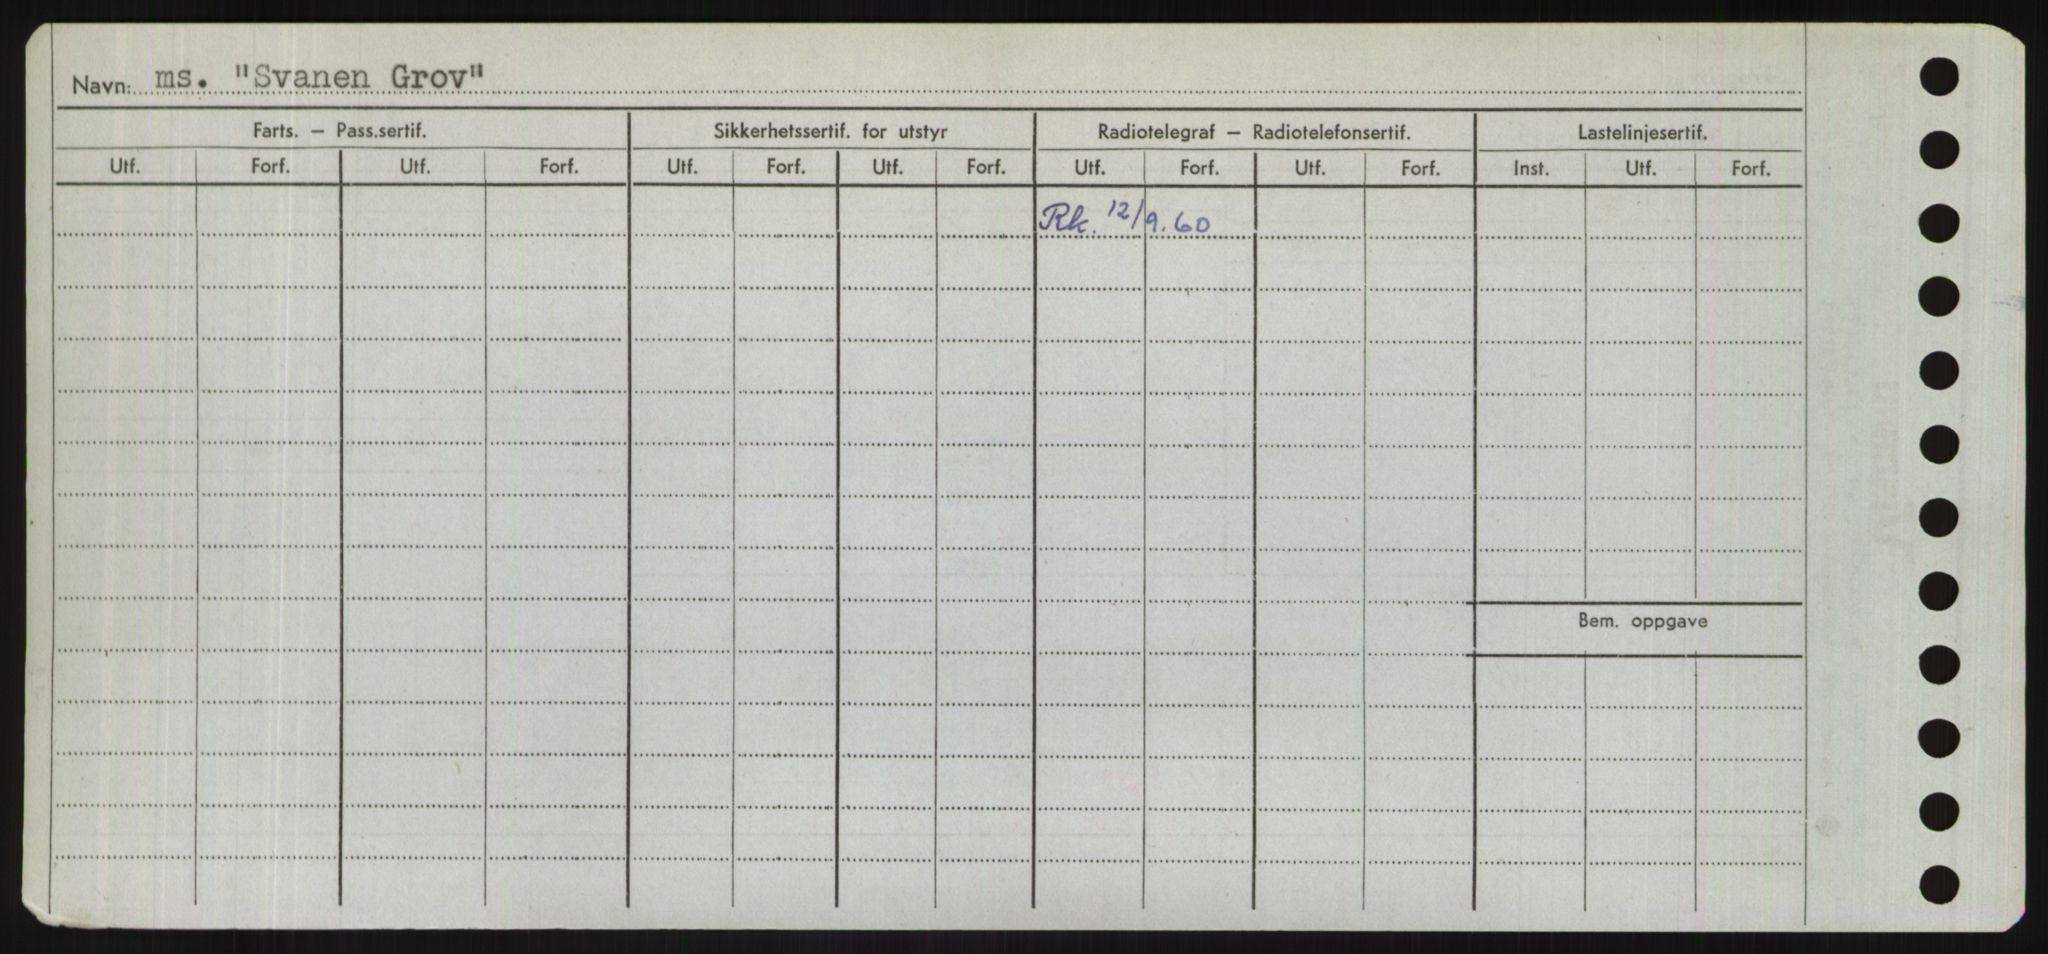 Navn: ms. "Svanen Grov"
Farts. – Pass.sertif. Sikkerhetssertif. for utstyr Radiotelegraf – Radiotelefonsertif. Lastelinjesertif.
Utf. Forf. Utf. Forf. Utf. Forf. Utf. Forf. Utf. Forf. Utf. Forf. Inst. Utf. Forf.
Rk. 12/9.60
Bem. oppgave